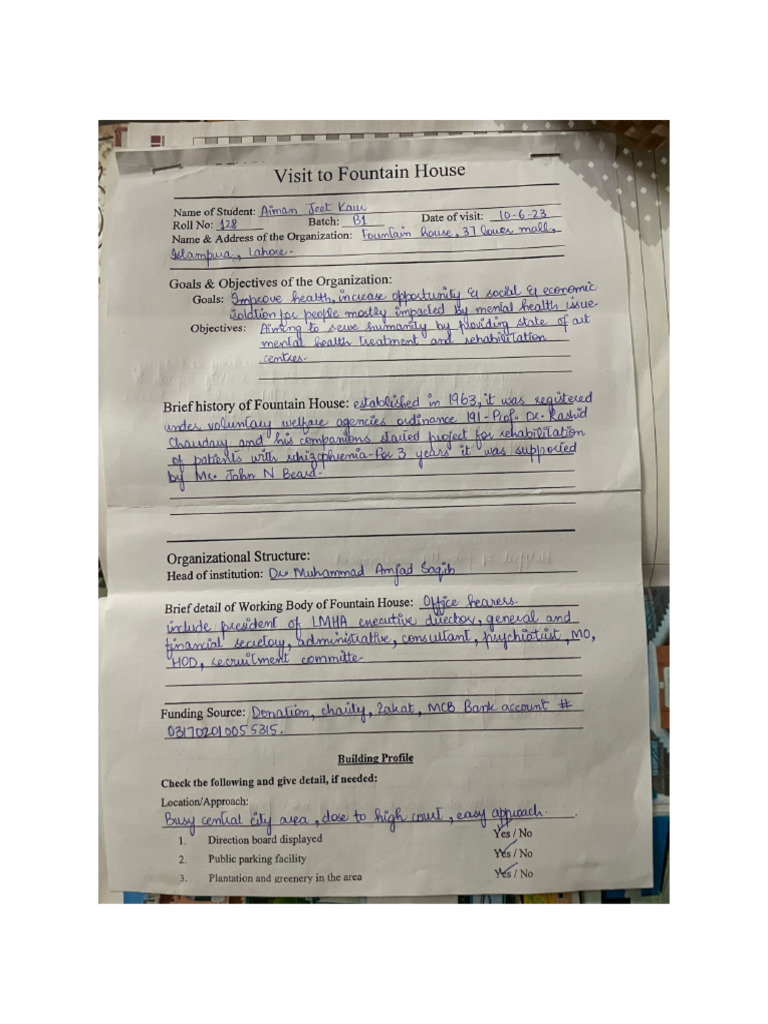 Visit to Fountain House
Name of Student: Aiman Jeet Kaur
Roll No: 128 Batch: B1 Date of visit: 10-6-23
Name & Address of the Organization: Fountain house, 37 lower mall,
Islampura, Lahore.
Goals & Objectives of the Organization:
Goals: Improve health, increase opportunity & social & economic
solution for people mostly impacted by mental health issue
Objectives: Aiming to serve humanity by providing state of art
mental health treatment and rehabilitation
centres.
Brief history of Fountain House: established in 1963, it was registered
under voluntary welfare agencies ordinance 191 - Prof. Dr. Rashid
Chaudary and his companions started project for rehabilitation
of patients with schizophremia - for 3 years it was supported
by Mr. John N Beard.
Organizational Structure:
Head of institution: Dr. Muhammad Amjad Saqib
Brief detail of Working Body of Fountain House: Office bearers.
include president of LMHA executive director, general and
financial secretory, administrative, consultant, psychiatrist, MO,
HOD, recruitment committe
Funding Source: Donation, chaity, Zakat, MCB Bank account #
031702010055315.
Building Profile
Check the following and give detail, if needed:
Location/Approach:
Busy central city area, close to high court, easy approach.
1. Direction board displayed Yes / No
2. Public parking facility Yes / No
3. Plantation and greenery in the area Yes / No